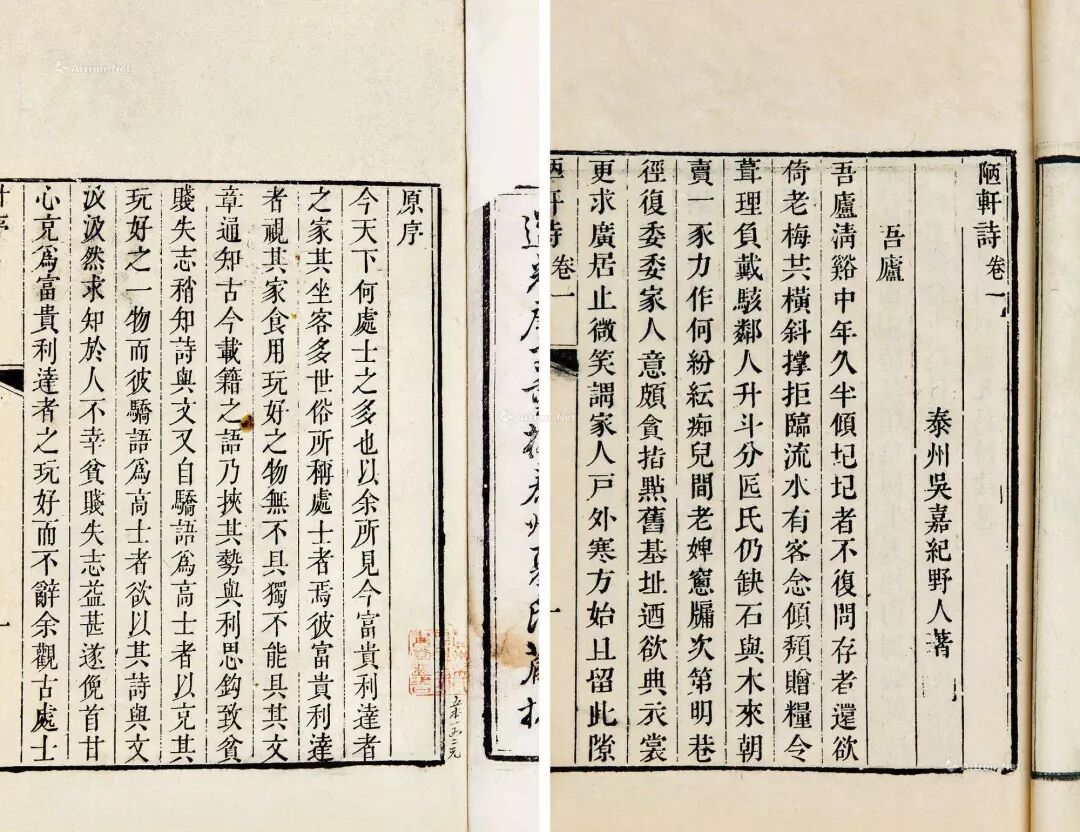 泰州夏氏藏板
原序
今天下何處士之多也以余所見今富貴利達者
之家其坐客多世俗所稱處士者焉彼富貴利達
者視其家食用玩好之物無不具獨不能具其文
章通知古今載籍之語乃挾其勢與利思鈎致貧
賤失志稍知詩與文又自驕語爲高士者以充其
玩好之一物而彼驕語爲高士者欲以其詩與文
汲汲然求知於人不幸貧賤失志益甚遂俛首甘
心充爲富貴利達者之玩好而不辭余觀古處士
陋軒詩卷一
泰州吳嘉紀野人著
吾廬
吾廬淸谿中年久半傾圮圮者不復問存者還欲
倚老梅共橫斜撑拒臨流水有客念傾頽贈糧令
葺理負戴駭鄰人升斗分匠氏仍缺石與木來朝
賣一豕力作何紛紜痴兒間老婢窻牖次第明巷
徑復委委家人意頗貪指點舊基址迺欲典衣裳
更求廣居止微笑謂家人戸外寒方始且留此隙
陋軒詩 卷一
一
Artron.Net
Artron.Net
Artron.Net